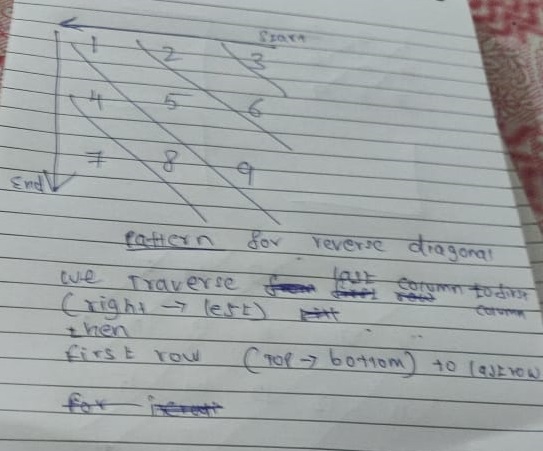 Start
1 2 3
4 5 6
7 8 9
End
Pattern for reverse diagonal
we Traverse last column to first column
(right → left)
then
first row (Top → bottom) to last row
for